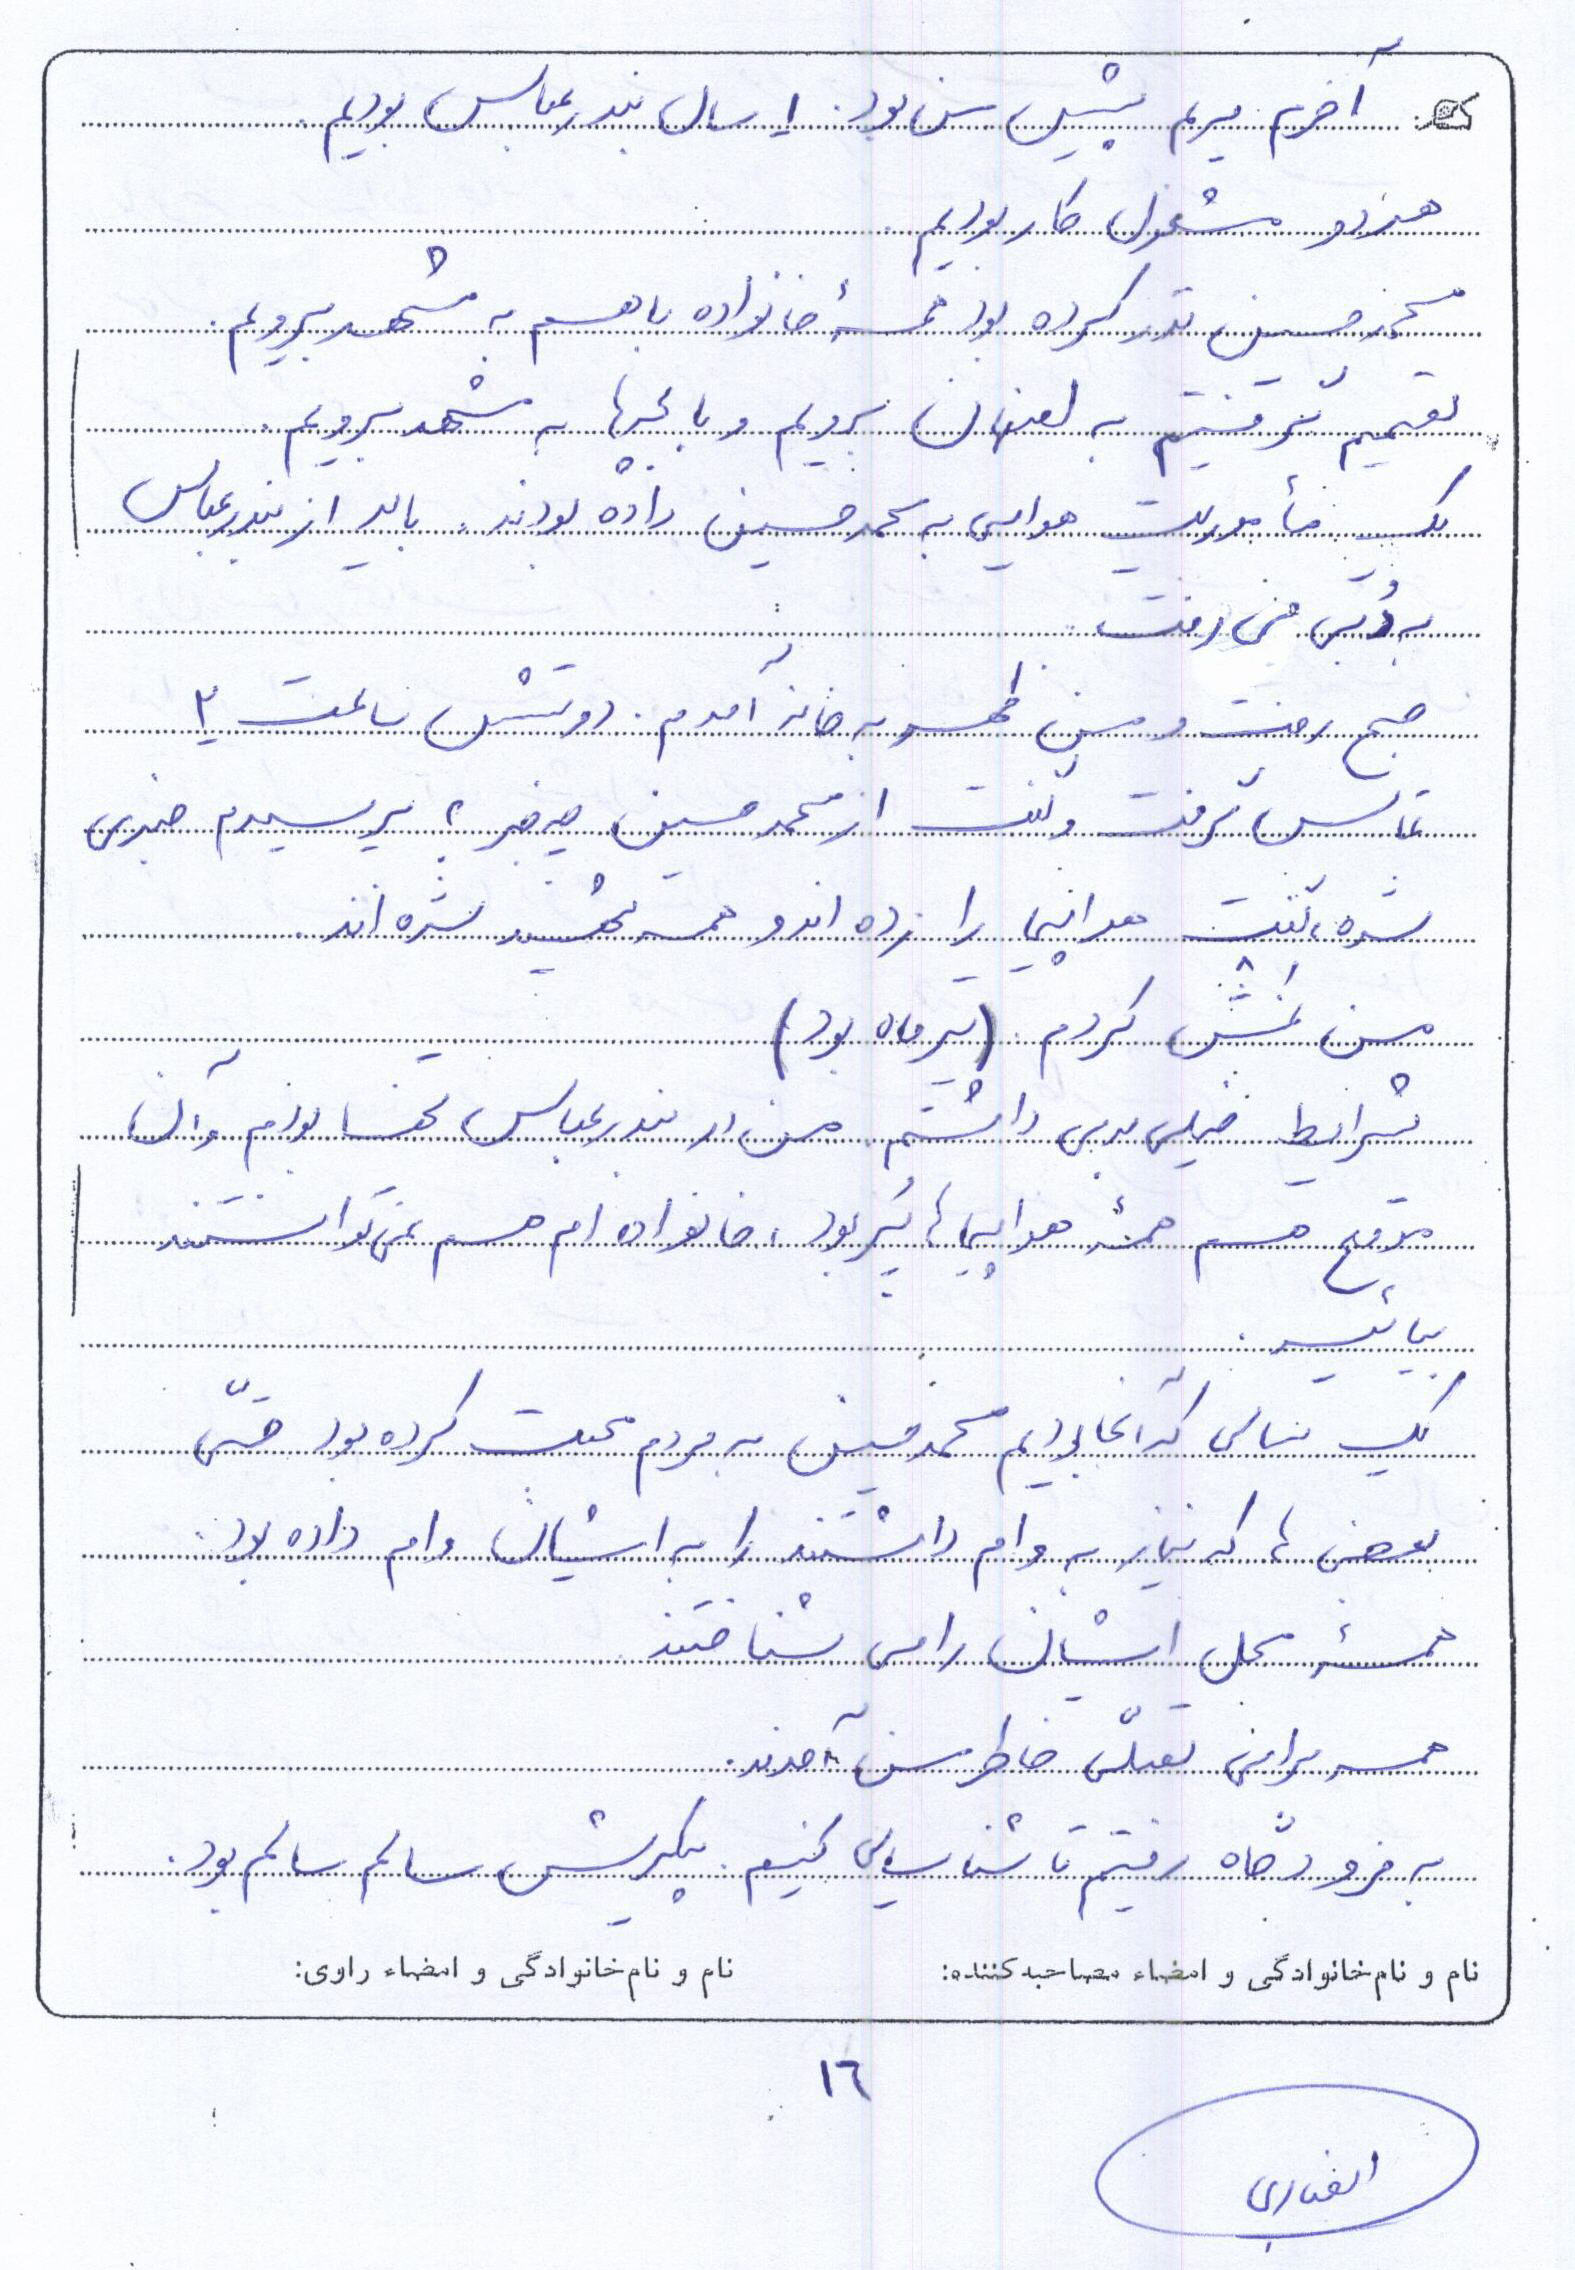 آخرم مریم پیش من بود. ۱ سال بندرعباس بودیم.
هر دو مشغول کار بودیم.
محمدحسین نذر کرده بود همهٔ خانواده با هم به مشهد برویم.
تصمیم گرفتیم به اصفهان برویم و با بچه‌ها به مشهد برویم.
یک مأموریت هوایی به محمدحسین داده بودند. باید از بندرعباس
به دُبی می رفت
صبح رفت و من ظهر به خانه آمدم. دوستش ساعت ۲
تماس گرفت و گفت از محمدحسین چه خبر؟ پرسیدم خبری
شده، گفت هواپیما را زده اند و همه شهید شده اند.
من غش کردم. (تیرماه بود)
شرایط خیلی بدی داشتم. من در بندرعباس تنها بودم و آن
موقع هم همهٔ هواپیماها پُر بود، خانواده ام هم نمی توانستند
بیائید.
یک سالی که آنجا بودیم محمدحسین به مردم محبت کرده بود حتّی
بعضی ها که نیاز به وام داشتند را به ایشان وام داده بود.
همهٔ محل ایشان را می شناختند
همه برای تسلّی خاطر من آمدند.
به فرودگاه رفتیم تا شناسایی کنیم. پیکرش سالم سالم بود.
نام و نام‌خانوادگی و امضاء مصاحبه‌کننده: نام و نام‌خانوادگی و امضاء راوی:
۱٦
انصاری